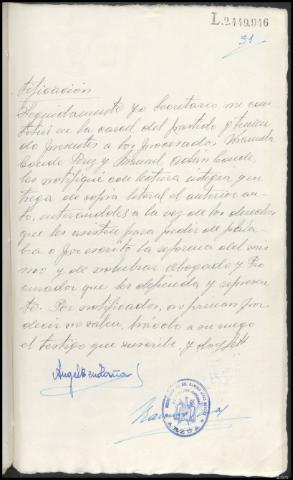 L.2449.946
31
Notificación
Seguidamente yo Secretario me cons
tituí en la carcel del partido y tenien
do presentes a los procesados Manuela
Conde Perez y Manuel Adán Conde,
les notifiqué con lectura integra y en
trega de copia literal el anterior au
to, enterandoles a la vez de los derechos
que les asisten para pedir de palab
ra o por escrito la reforma del mis
mo y de nombrar Abogado y Pro
curador que les defienda y represen
te. Por notificados, no firman por
decir no saber, hácelo a su ruego
el testigo que suscribe y doy fé
Angel
ARZUA